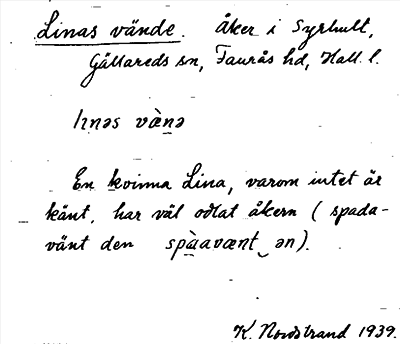 Linas vände. Åker i Syrhult,
Gällareds sn, Faurås hd, Hall. l.
lınəs vὰnə
En kvinna Lina, varom intet är
känt, har väl odlat åkern (spada-
vänt den spὰavænt ən).
K. Nordstrand 1939.